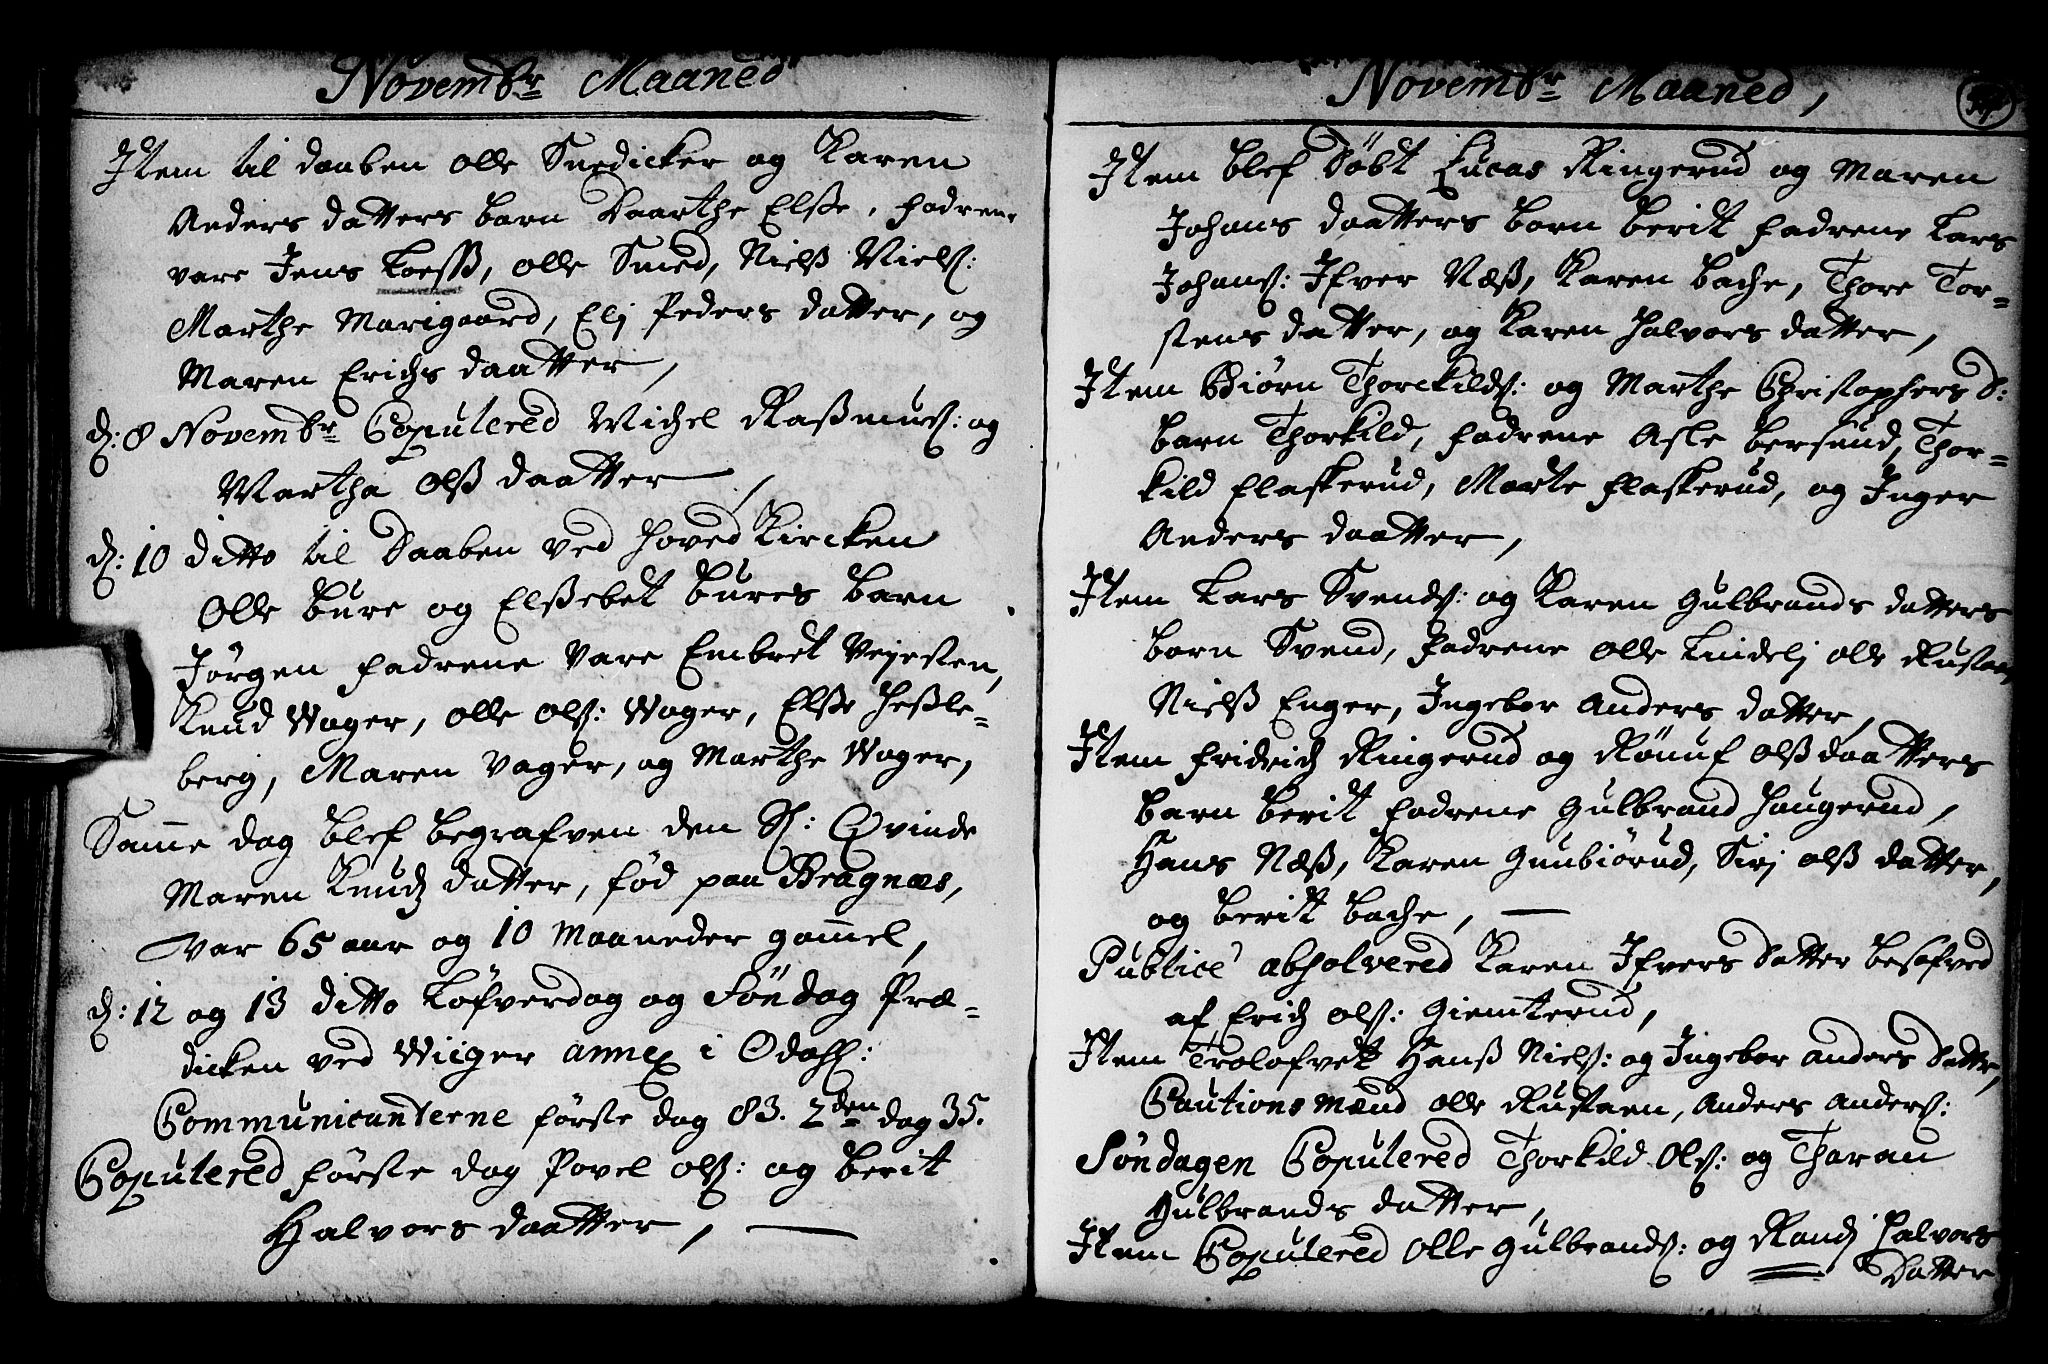 Novembr Maaned
Item til daaben Olle Snedicker og Karen
Anders datters barn Daarthe Elsse, fadrene
vare Jens Loess, Olle Smed, Nielss Niels:
Marthe Marigaard, Elj Peders datter, og
Maren Erichs daatter,
d: 8 Novembr Copulered Michel Rassmus: og
Martha Olss daatter,
d: 10 ditto til Daaben ved Hoved Kircken
Olle Bure og Elssebet Bures barn
Jörgen fadrene vare Embret Vejesten,
Knud Wager, Olle Ols: Wager, Elsse Hessle-
berg, Maren Vager, og Marthe Wager,
Samme dag blef begrafven den Sl: Qvinde
Maren Knudz datter, fød paa Bragnæs,
var 65 aar og 10 Maaneder gammel,
d: 12 og 13 ditto Löfverdag og Söndag Præ-
dicken ved Wiiger annex i Odahl:
Communicanterne förste dag 83. 2den dag 35.
Copulered förste dag Povel Ols: og Berit
Halvors daatter,
Novembr Maaned,
Item blef Döbt Lucas Ringerud og Maren
Johans daatters barn Berit fadrene Lars
Johans: Ifver Næss, Karen Bache, Thore Tor-
stens datter, og Karen Halvors datter,
Item Biörn Thorckilds: og Marthe Christophers D:
barn Thorkild, fadrene Asle Bersund, Thor-
kild Flaskerud, Marte Flaskerud, og Inger
Anders daatter,
Item Lars Svends: og Karen Gulbrands datters
barn Svend, Fadrene Olle Lindelj Olle Rustaen,
Nielss Enger, Ingebor Anders datter,
Item Fridrich Ringerud og Rönuf Olss daatters
barn Berit fadrene Gulbrand Haugerud,
Hans Næss, Karen Gunbiörud, Sirj Olss datter,
og Berit Bache,
Publicè absolvered Karen Ifvers Datter besofved
af Erich Ols: Giemterud,
Item Trolofvet Hanss Niels: og Ingebor Anders Datter,
Cautions Mænd Olle Rustaen, Anders Anders:
Söndagen Copulered Thorkild Ols: og Tharan
Gulbrands datter,
Item Copulered Olle Gulbrands: og Randj Halvors
Datter